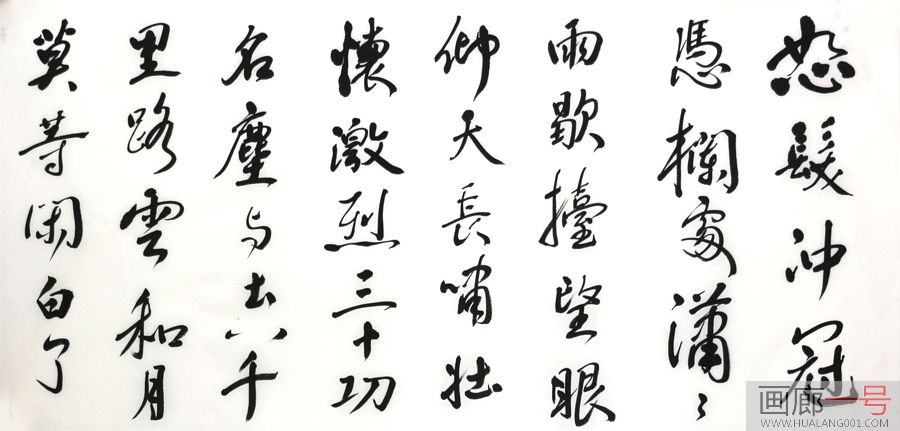 怒髮冲冠
憑欄處瀟々
雨歇擡望眼
仰天長嘯壯
懷激烈三十功
名塵与土八千
里路雲和月
莫等閑白了
画廊一号
WWW.HUALANG001.COM